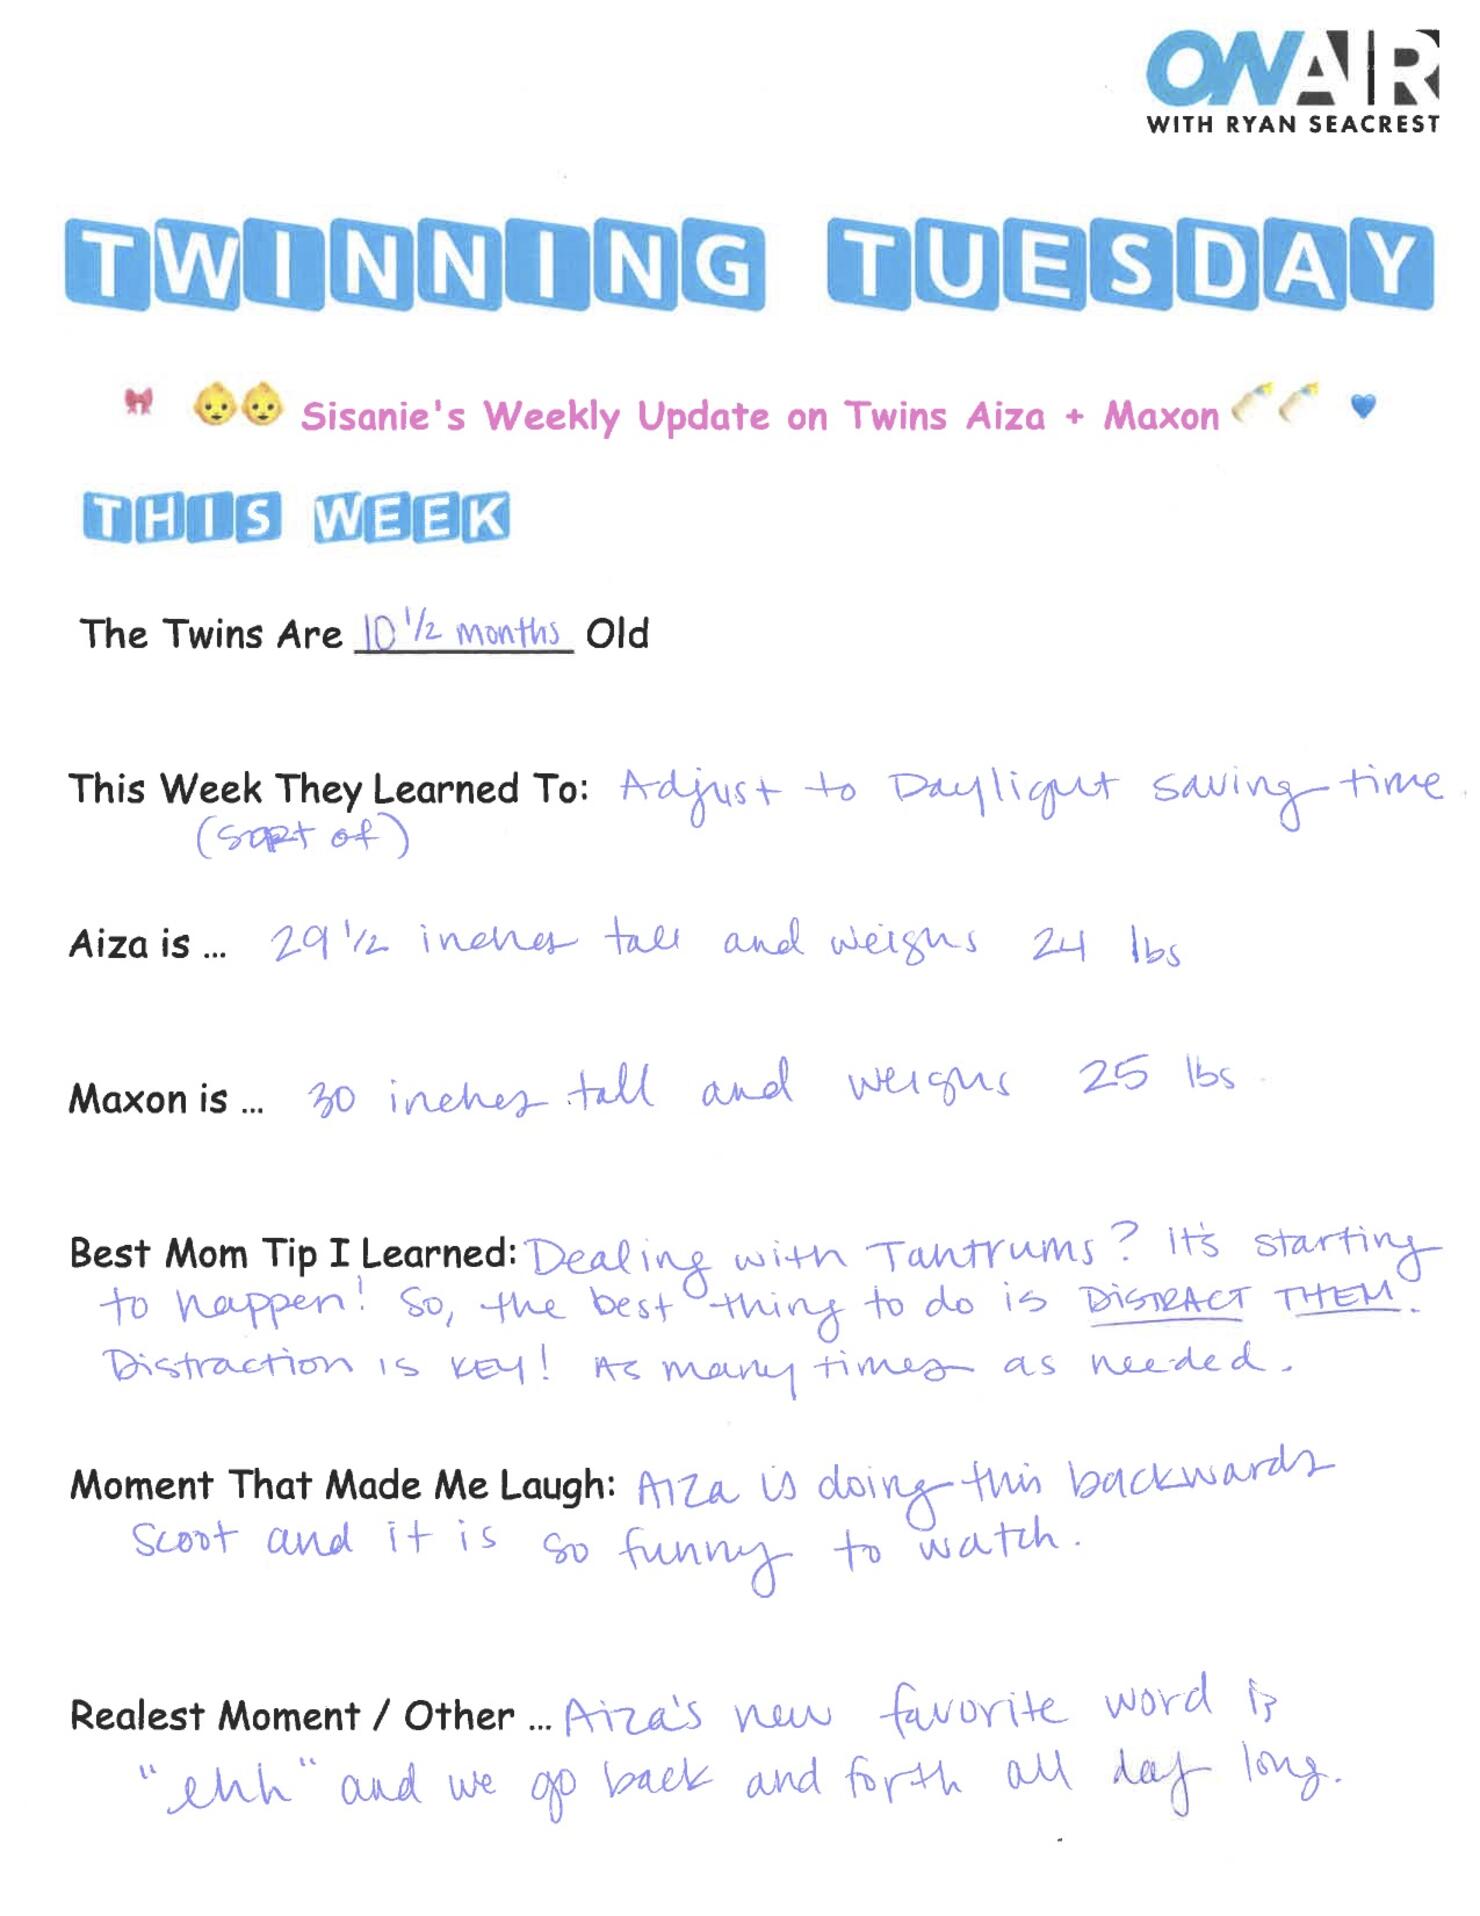 ON AIR
WITH RYAN SEACREST
TWINNING TUESDAY
Sisanie's Weekly Update on Twins Aiza + Maxon
THIS WEEK
The Twins Are 10 1/2 months Old
This Week They Learned To: Adjust to Daylight saving time
(sort of)
Aiza is ... 29 1/2 inches tall and weighs 24 lbs
Maxon is ... 30 inches tall and weighs 25 lbs
Best Mom Tip I Learned: Dealing with Tantrums? it's starting
to happen! So, the best thing to do is DISTRACT THEM.
Distraction is KEY! As many times as needed.
Moment That Made Me Laugh: Aiza is doing this backwards
scoot and it is so funny to watch.
Realest Moment / Other ... Aiza's new favorite word is
"ehh" and we go back and forth all day long.